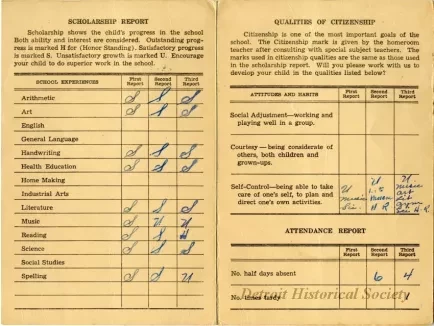 SCHOLARSHIP REPORT
Scholarship shows the child's progress in the school
Both ability and interest are considered. Outstanding prog-
ress is marked H for (Honor Standing). Satisfactory progress
is marked S. Unsatisfactory growth is marked U. Encourage
your child to do superior work in the school.
SCHOOL EXPERIENCES First Report Second Report Third Report
Arithmetic S S S
Art S S S
English
General Language
Handwriting S S S
Health Education S S S
Home Making
Industrial Arts
Literature S S S
Music S U U
Reading S S H
Science S S S
Social Studies
Spelling S S U
QUALITIES OF CITIZENSHIP
Citizenship is one of the most important goals of the
school. The Citizenship mark is given by the homeroom
teacher after consulting with special subject teachers. The
marks used in citizenship qualities are the same as those used
in the scholarship report. Will you please work with us to
develop your child in the qualities listed below?
ATTITUDES AND HABITS First Report Second Report Third Report
Social Adjustment—working and
playing well in a group.
Courtesy—being considerate of
others, both children and
grown-ups.
Self-Control—being able to take
care of one's self, to plan and
direct one's own activities.
U
music
U
music
H R
U
music
art
lit
H.R.
ATTENDANCE REPORT
First Report Second Report Third Report
No. half days absent 6 4
No. times tardy 1
Detroit Historical Society